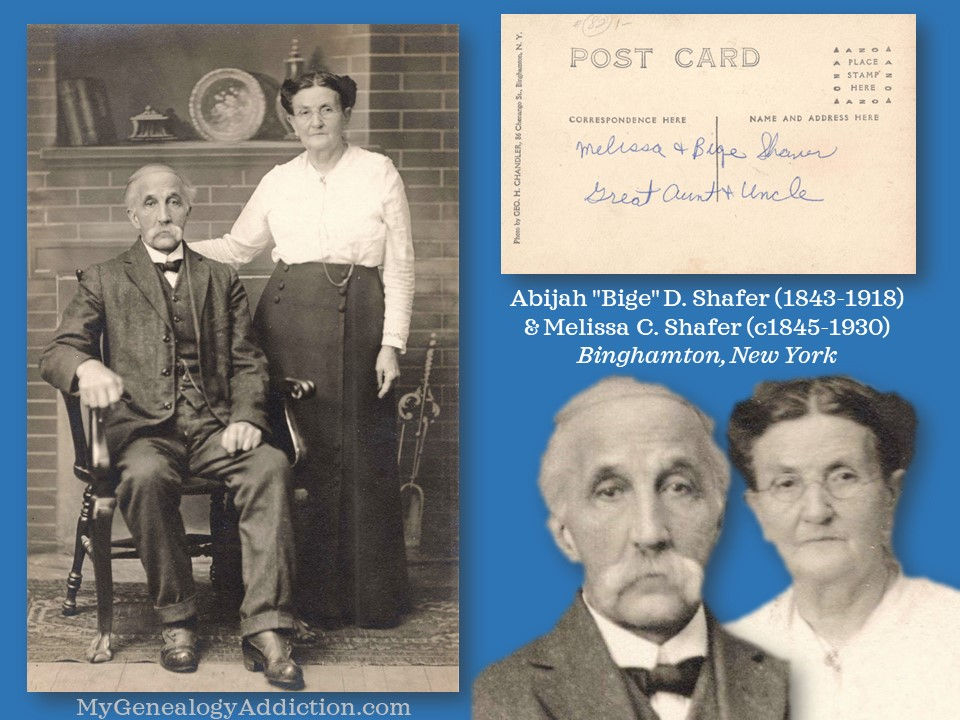 #(82)1-
POST CARD
A Z O
PLACE
STAMP
HERE
A Z O
CORRESPONDENCE HERE
NAME AND ADDRESS HERE
Melissa & Bige Shaver
Great Aunt & Uncle
Photo by GEO. H. CHANDLER, 86 Chenango St., Binghamton, N. Y.
Abijah "Bige" D. Shafer (1843-1918)
& Melissa C. Shafer (c1845-1930)
Binghamton, New York
MyGenealogyAddiction.com